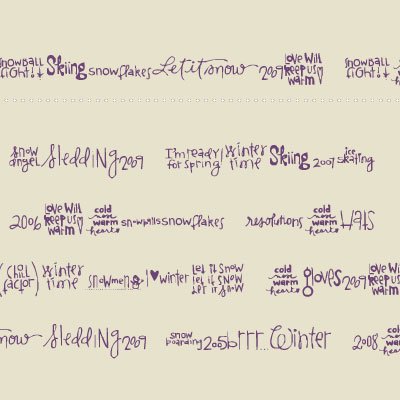 snowball fight! Skiing snowflakes Let it snow 2009 love will keep us warm snowball fight!
snow angel Sledding 2009 I'm ready for spring Winter time Skiing 2007 ice skating
2006 love will keep us warm cold nose warm heart snowballs snowflakes resolutions cold nose warm heart Hats
(chill factor) winter time snowmen I ♥ winter let it snow let it snow let it snow cold nose warm heart gloves 2009 love will keep us warm
snow Sledding 2009 snow boarding 2005 brrr... Winter 2008 cold warm heart